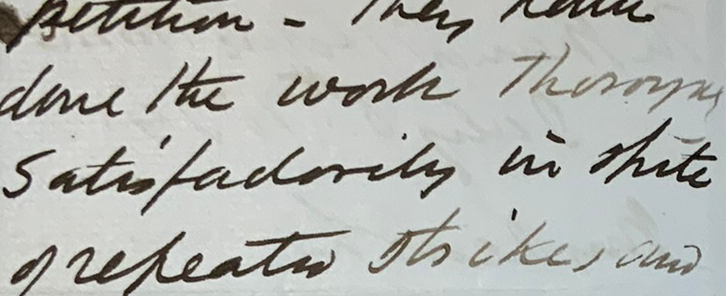 petition - They have
done the work Thoroughly
Satisfactorily in spite
of repeated strikes and